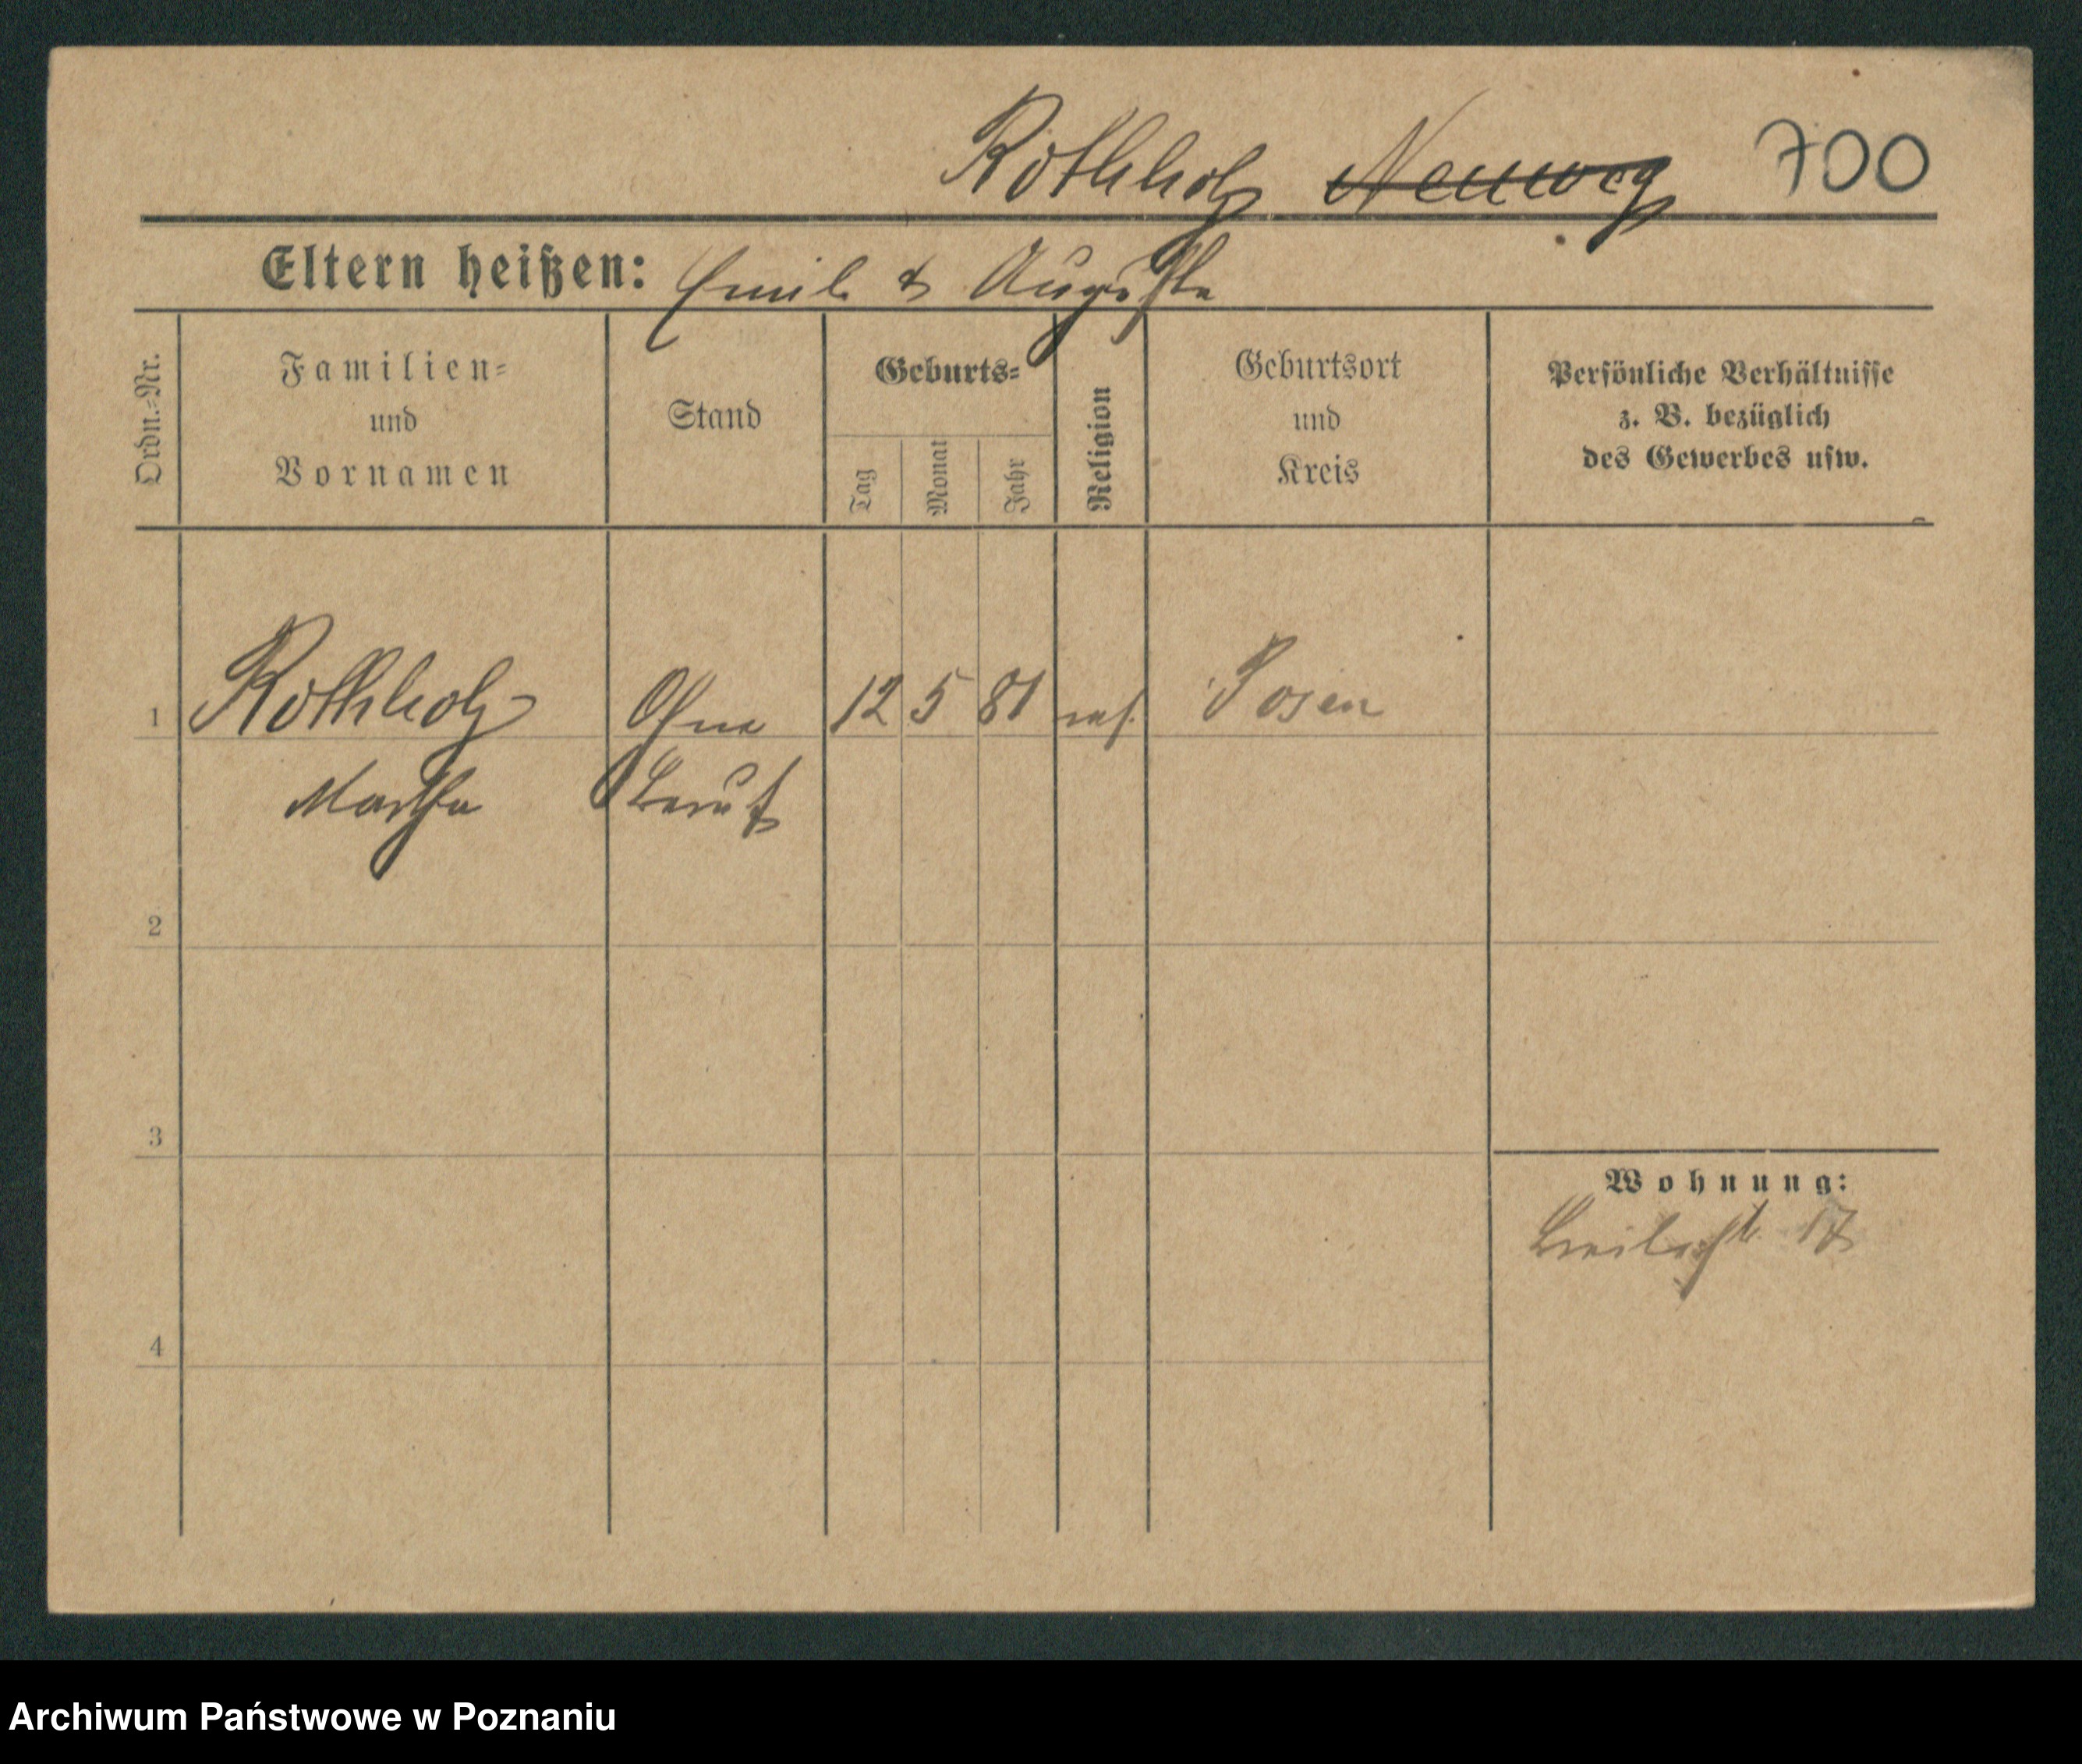 Rothholz Neuweg 700
Eltern heißen: Emil & Auguste
Ordn.=Nr.
Familien=
und
Vornamen
Stand
Geburts=
Tag
Monat
Jahr
Religion
Geburtsort
und
Kreis
Persönliche Verhältnisse
z. B. bezüglich
des Gewerbes usw.
1 Rothholz Ohne 12 5 81 Posen
Martha Beruf
2
3
Wohnung:
Breitestr. 17
4
Archiwum Państwowe w Poznaniu